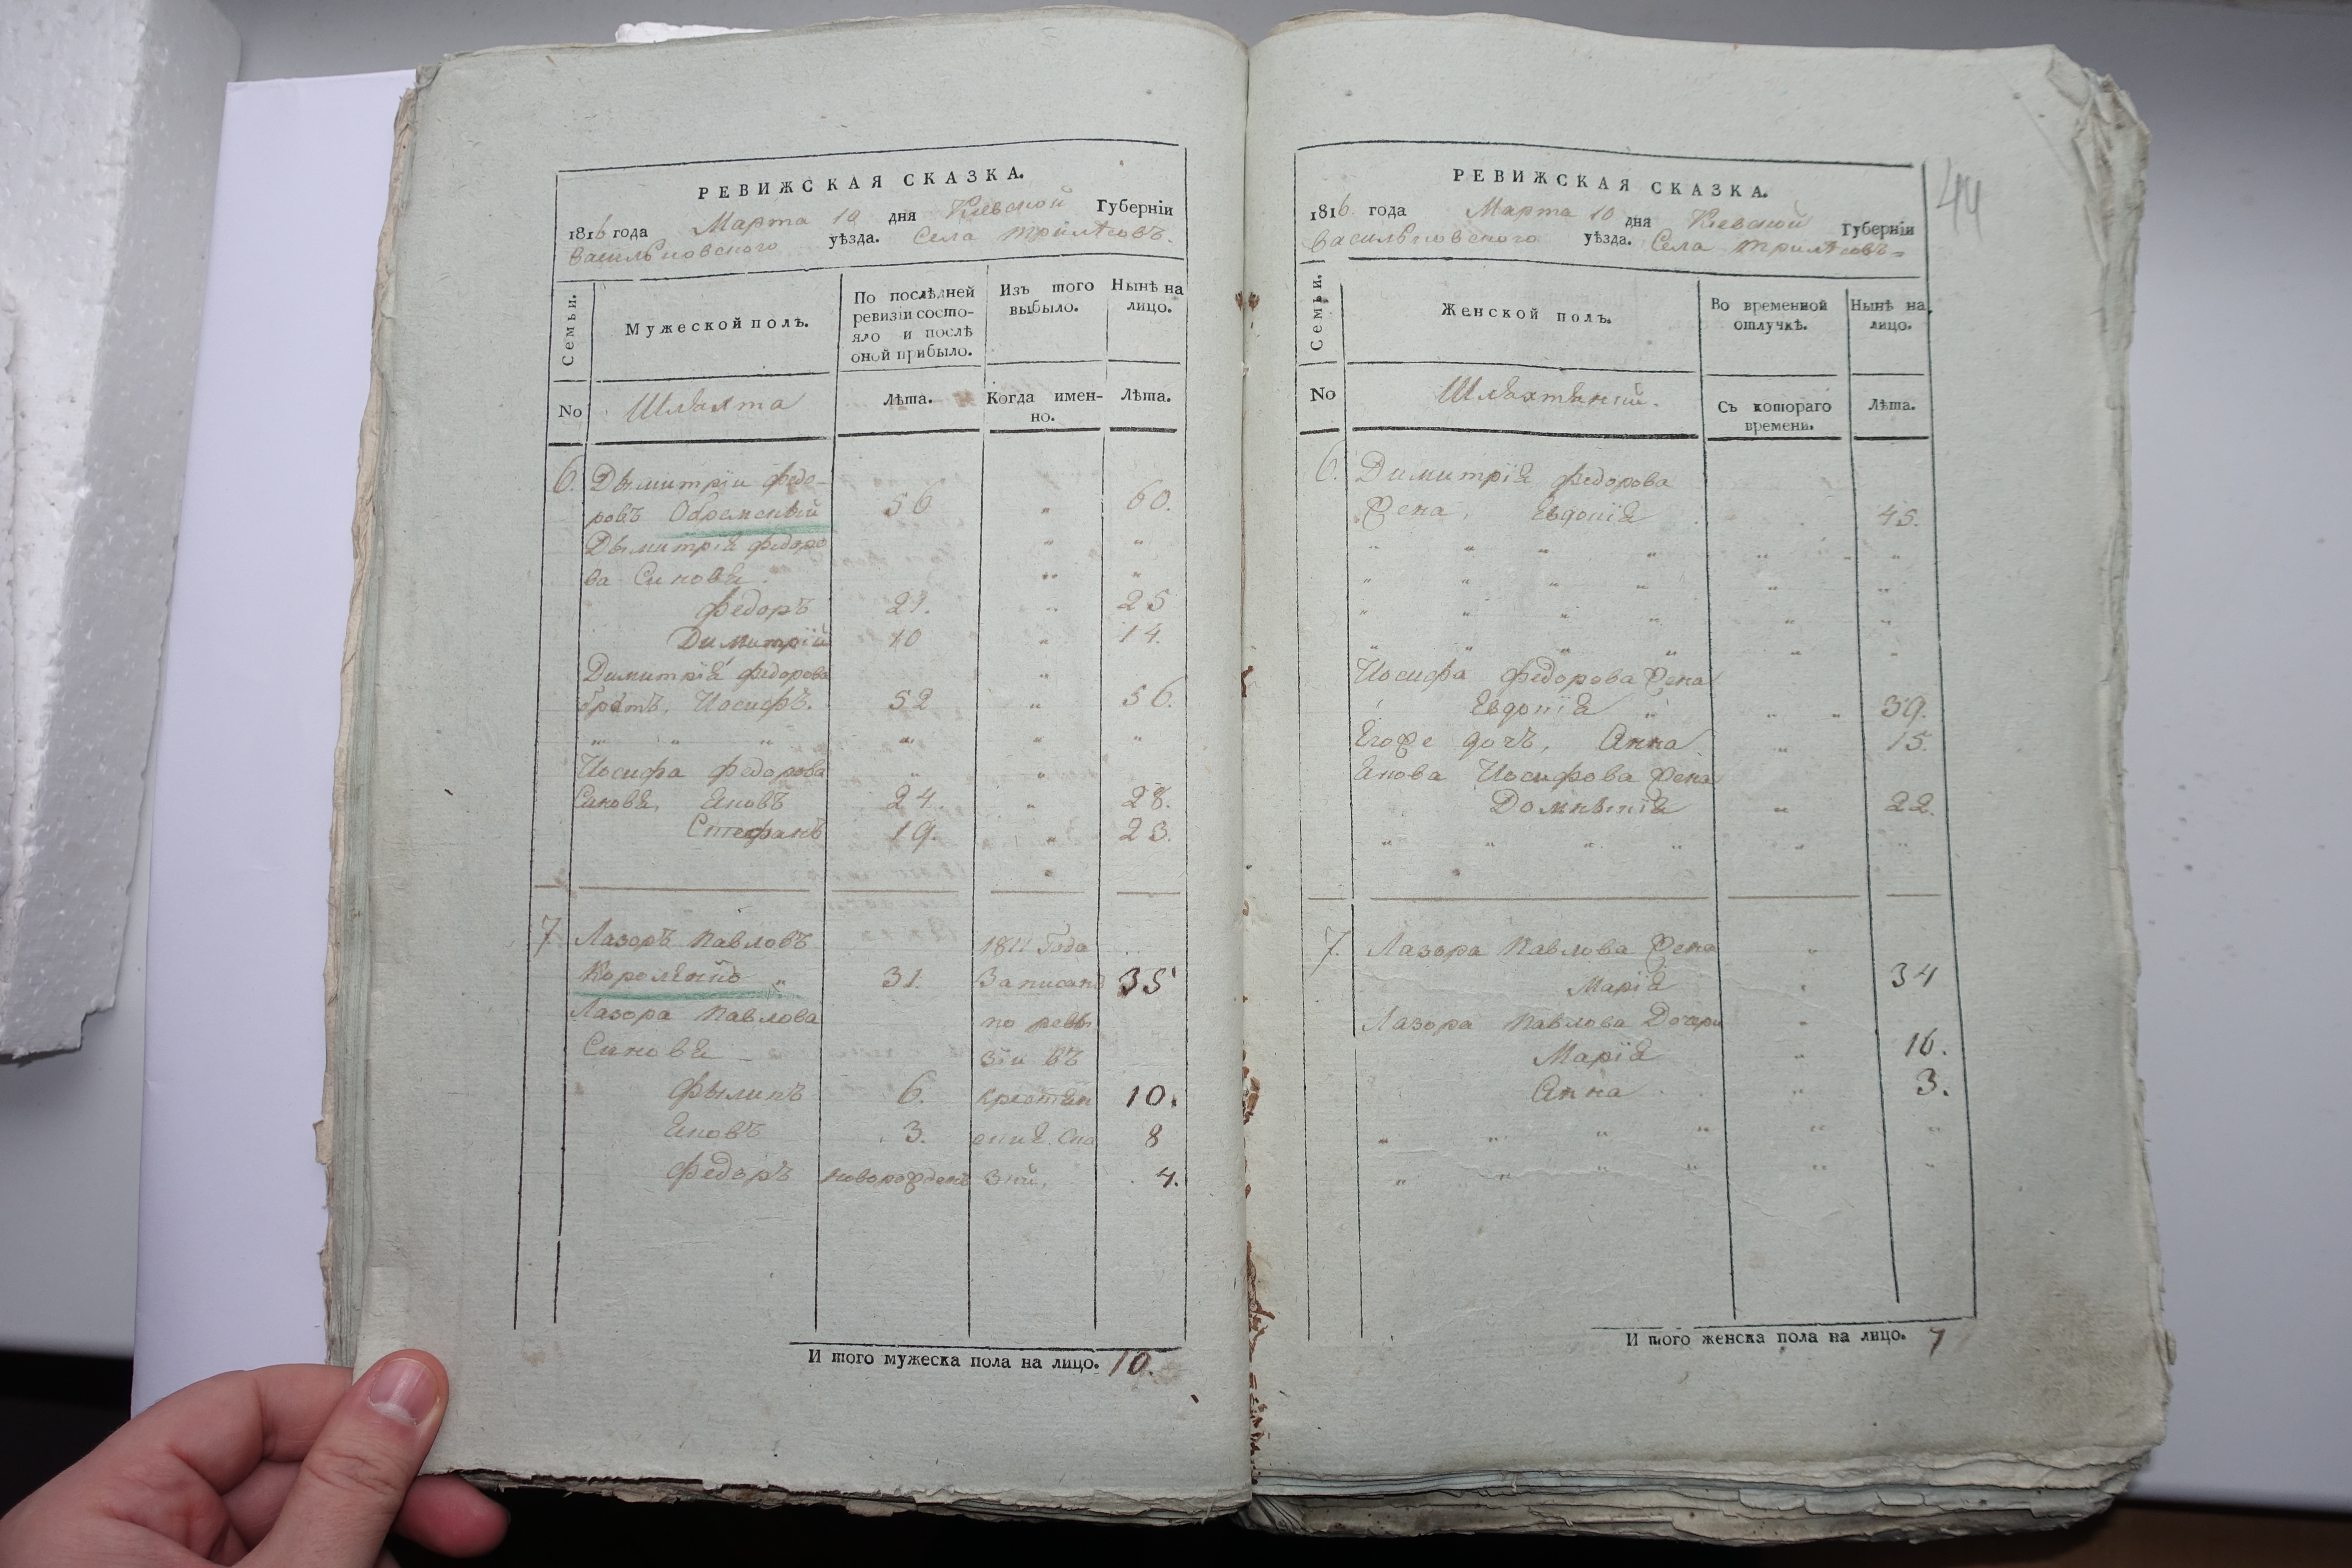 РЕВИЖСКАЯ СКАЗКА.
1816 года Марта 10 дня Кіевской Губерніи
Васильковского уѣзда. Села Трилѣсовъ.
Семьи.
Мужеской полъ.
По послѣдней ревизіи состояло и послѣ оной прибыло.
Изъ того выбыло.
Нынѣ на лицо.
No
Шляхта
Лѣта.
Когда именно.
Лѣта.
6. Дымитрій Федо-
ровъ 56 " 60.
Дымитрія Федоро " "
ва Синовя. " "
Федоръ 21. " 25
Димитрій 10 " 14.
Димитрія Федорова "
братъ, Иосифъ. 52 " 56.
" " " " " "
Иосифа Федорова " "
Синовя, Яковъ 24. " 28.
Стефанъ 19. " 23.
"
7 Лазоръ Павловъ 1811 Года
31. Записанъ 35
Лазора Павлова по реви
Синовя зіи въ
Филипъ 6. 10.
Яковъ 3. 8
Федоръ новорожденъ 4.
И того мужеска пола на лицо. 10.
РЕВИЖСКАЯ СКАЗКА.
44
1816 года Марта 10 дня Кіевской Губерніи
Васильковского уѣзда. Села Трилѣсовъ
Семьи.
Женской полъ.
Во временной отлучкѣ.
Нынѣ на лицо.
No
Съ котораго времени.
Лѣта.
6. Димитрія Федорова
Жена, Евдокія 45.
" " " " " "
" " " " " "
" " " " " "
" " " " " "
Иосифа Федорова Жена
Евдокія " " 39.
Егоже дочъ, Анна " 15.
Якова Иосифова Жена
" 22.
" " " " " "
7. Лазора Павлова Жена "
Марія " 34
Лазора Павлова Дочери "
Марія " 16.
Анна " 3.
" " " " " "
" " " " " "
И того женска пола на лицо. 7